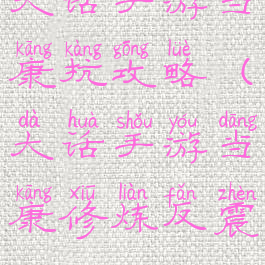 大话手游当
kāng kàng gōng lüè
康抗攻略（
dà huà shǒu yóu dāng
大话手游当
kāng xiū liàn fǎn zhèn
康修炼反震